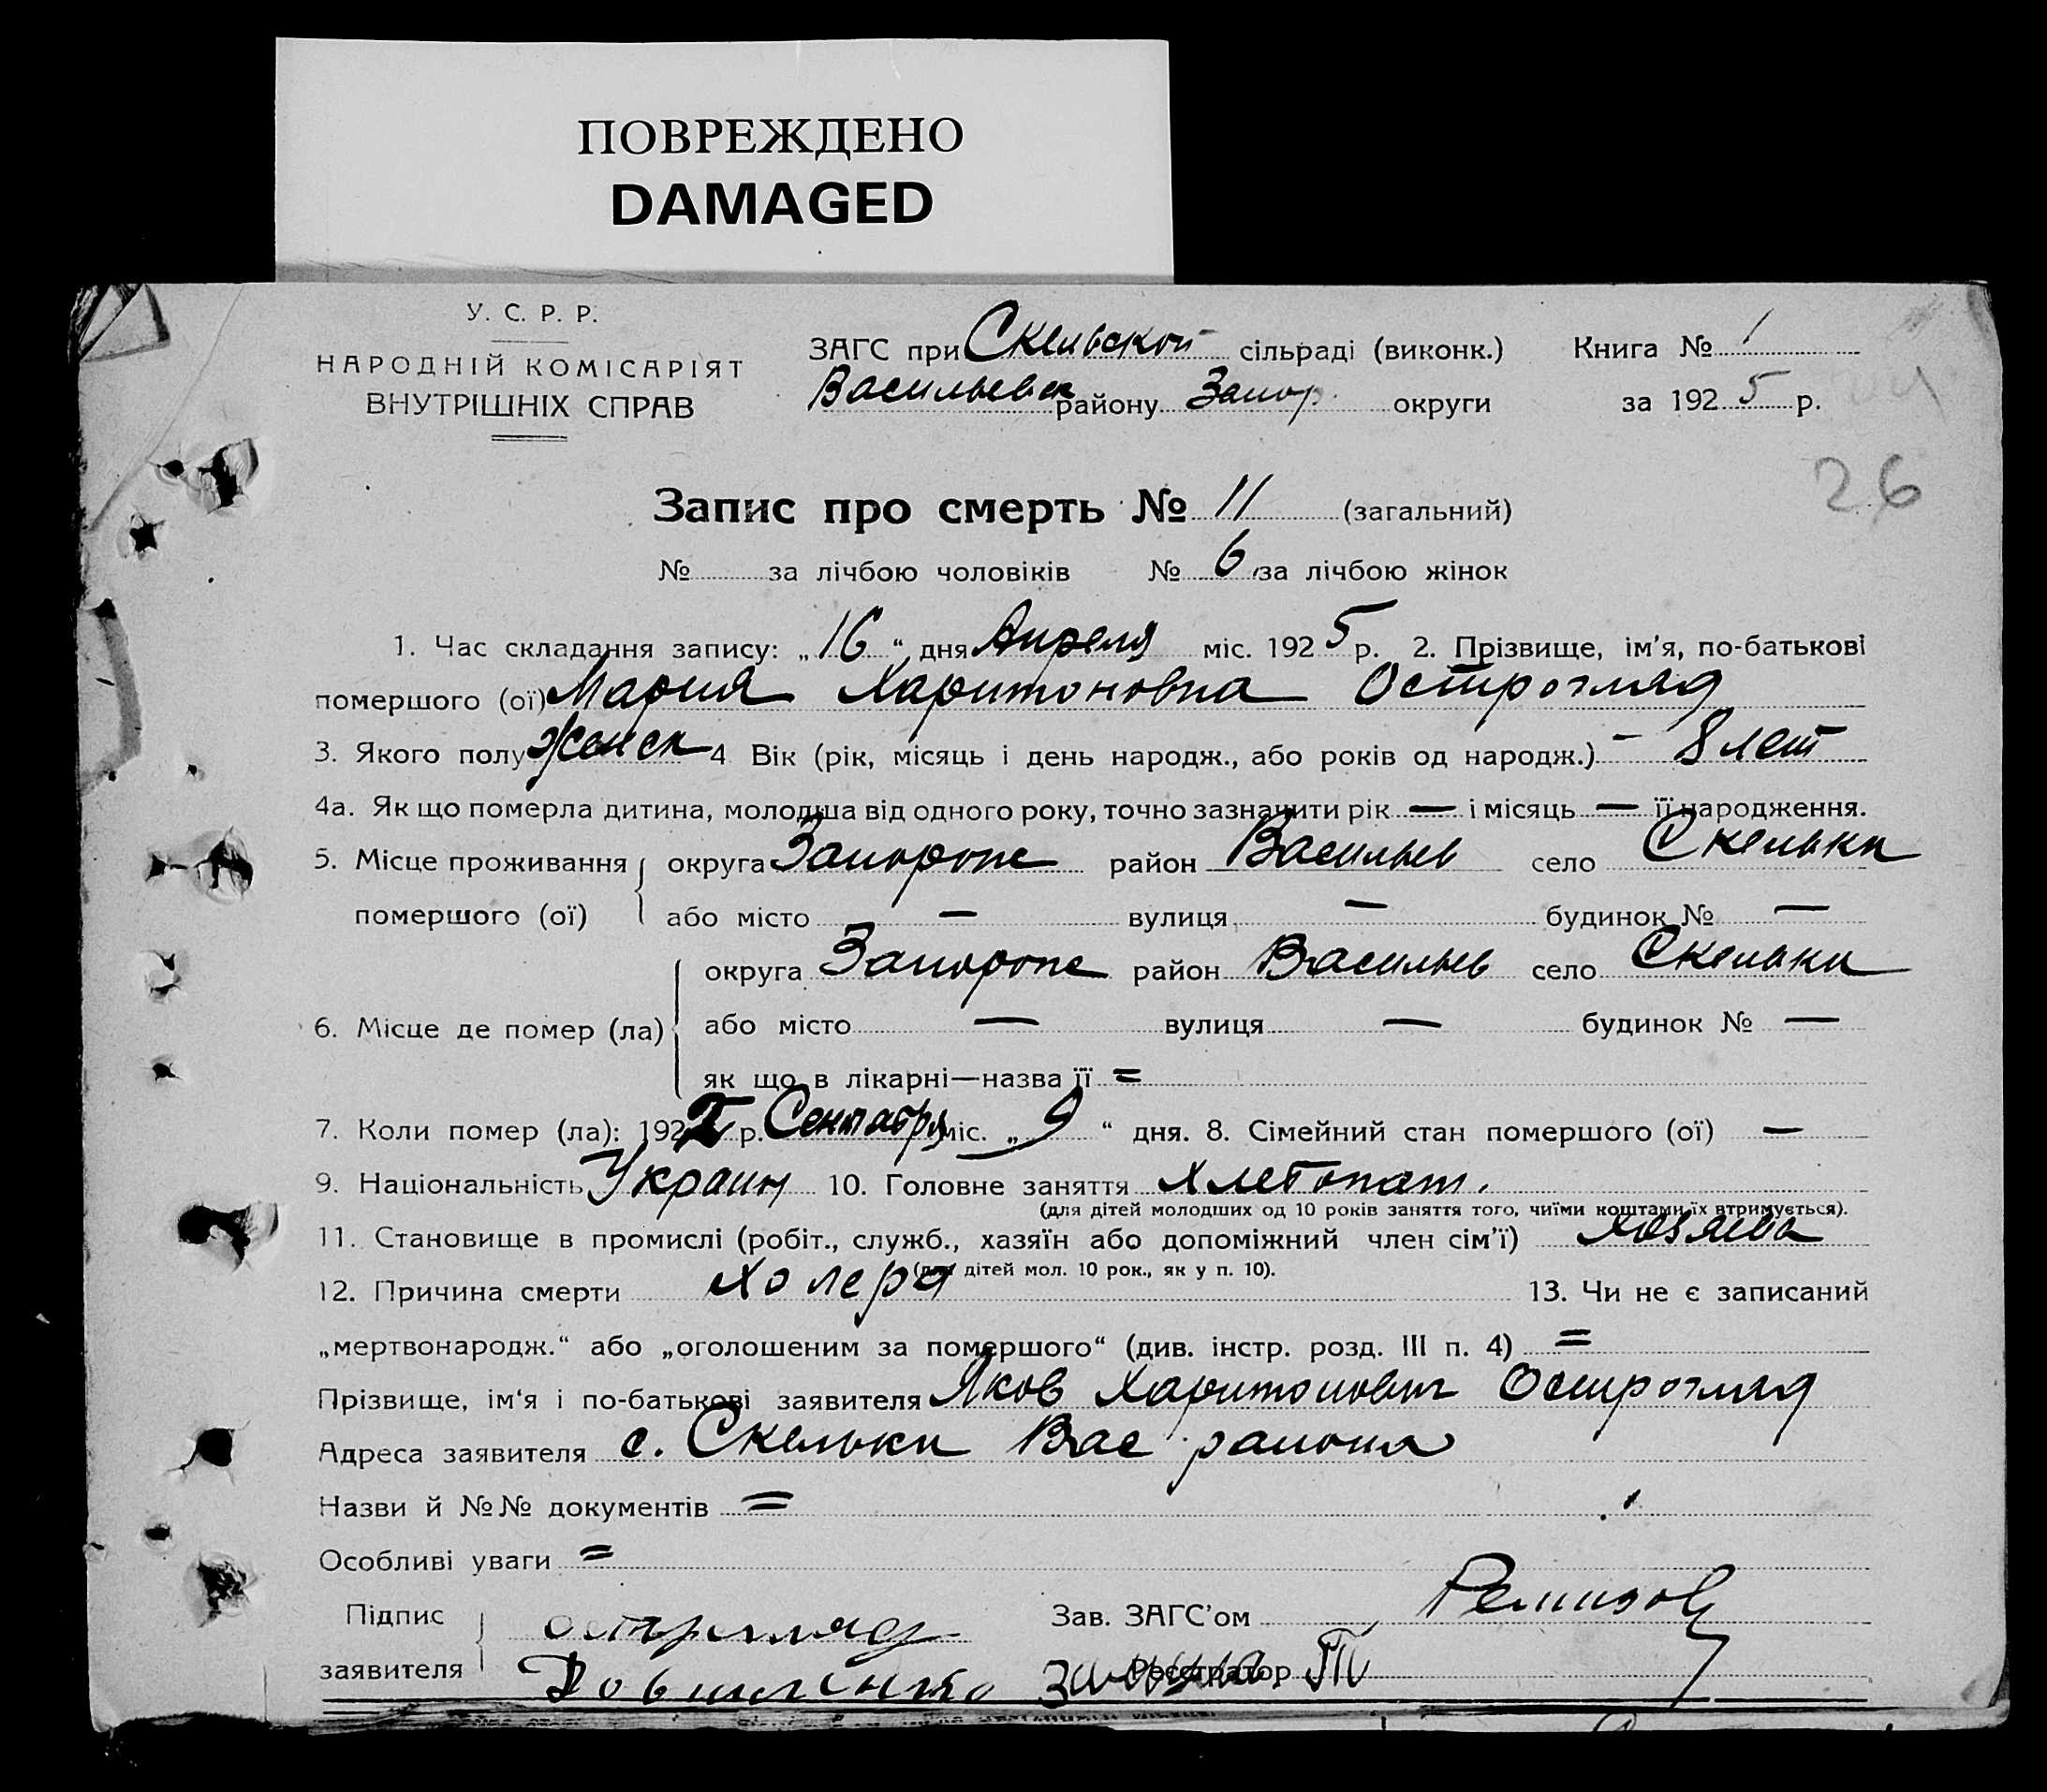 ПОВРЕЖДЕНО
DAMAGED
У. С. Р. Р.
НАРОДНІЙ КОМІСАРІЯТ
ВНУТРІШНІХ СПРАВ
ЗАГС при Скельской сільраді (виконк.) Книга № 1
Васильевск району Запор. округи за 1925 р.
26
Запис про смерть № 11 (загальний)
№ за лічбою чоловіків № 6 за лічбою жінок
1. Час складання запису: „16“ дня Апреля міс. 1925 р. 2. Прізвище, ім'я, по-батькові
помершого (ої) Мария Харитоновна Остройгляд
3. Якого полу Женск 4 Вік (рік, місяць і день народж., або років од народж.) — 8 лет
4а. Як що померла дитина, молодша від одного року, точно зазначити рік — і місяць — її народження.
5. Місце проживання округа Запорож район Васильев село Скельки
помершого (ої) або місто — вулиця — будинок № —
округа Запорож район Васильев село Скельки
6. Місце де помер (ла) або місто — вулиця — будинок № —
як що в лікарні—назва її =
7. Коли помер (ла): 192 р. Сентабря міс. „9“ дня. 8. Сімейний стан помершого (ої) —
9. Національність Украин 10. Головне заняття хлебопат.
(для дітей молодших од 10 років заняття того, чиїми коштами їх втримується).
11. Становище в промислі (робіт., служб., хазяїн або допоміжний член сім'ї) хозяева
(для дітей мол. 10 рок., як у п. 10).
12. Причина смерти холера 13. Чи не є записаний
„мертвонародж.“ або „оголошеним за помершого“ (див. інстр. розд. III п. 4) =
Прізвище, ім'я і по-батькові заявителя Яков Харитонович Острогляд
Адреса заявителя с. Скельки Вас района
Назви й №№ документів =
Особливі уваги =
Підпис острогляд Зав. ЗАГС'ом Ремизов
заявителя Реєстратор